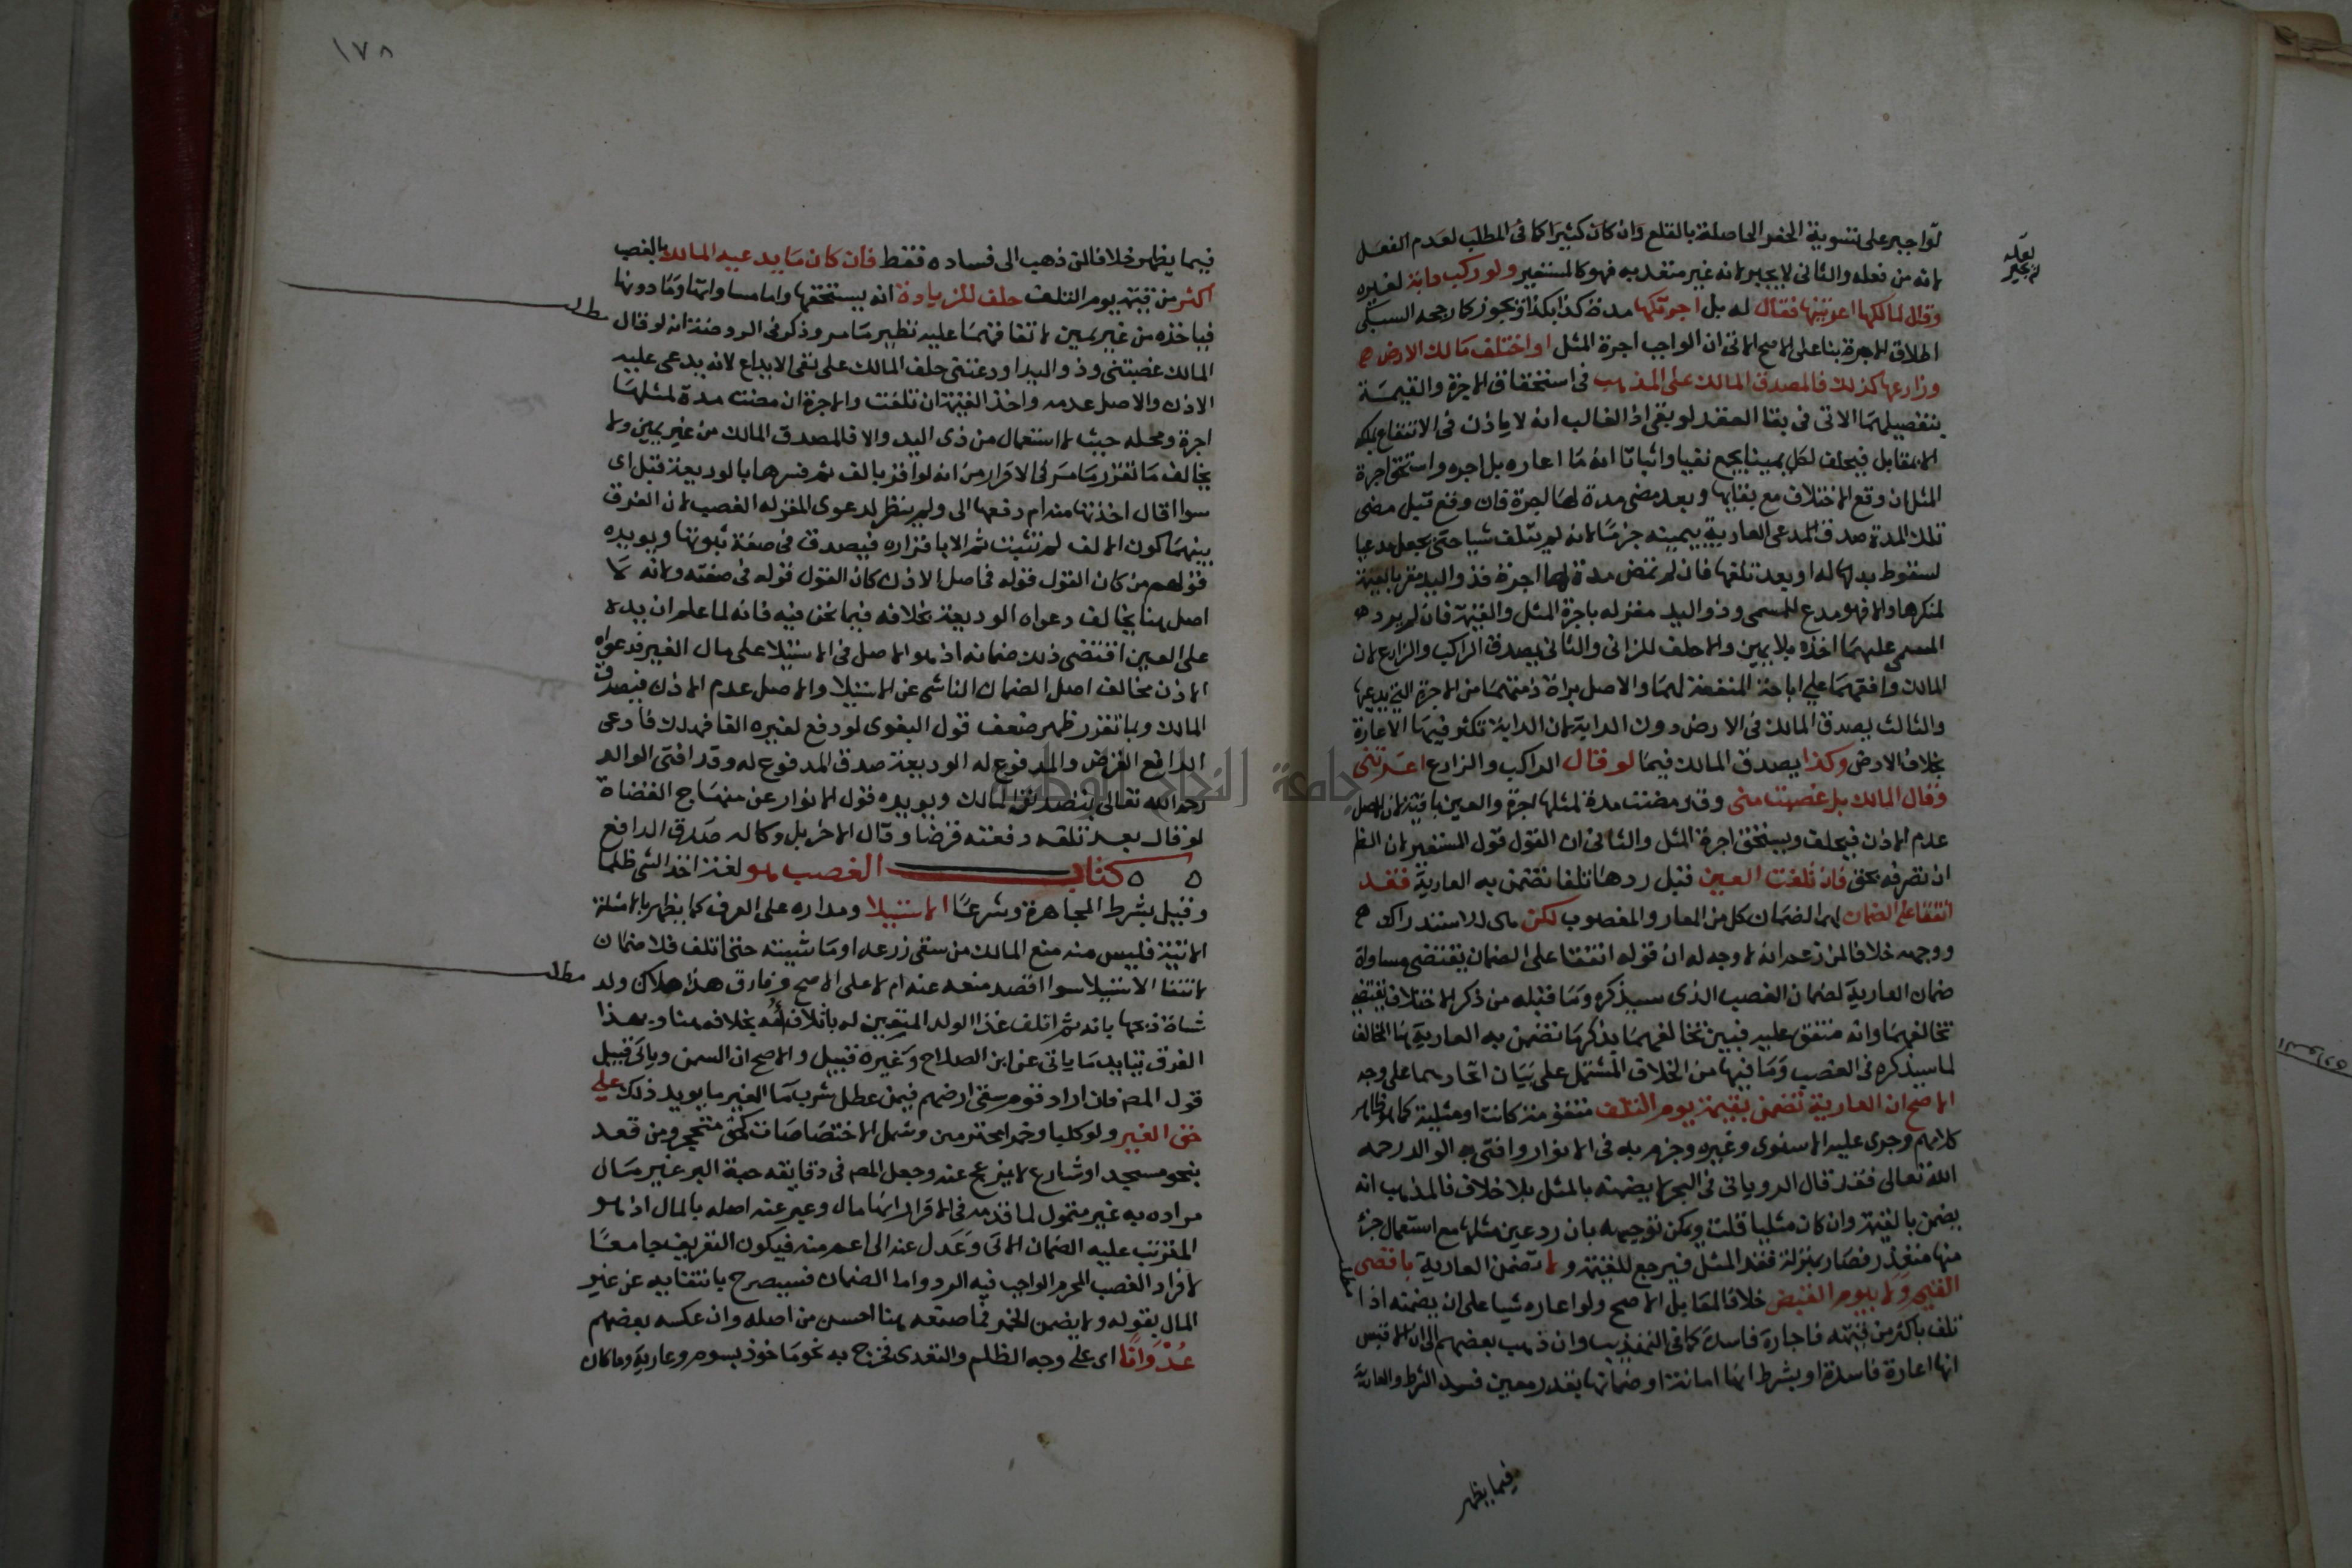 لواجبر على تسوية الحفر الحاصلة بالقلع وان كان كثيرا كما فى المطلب لعدم الفعل
لانه من فعله والثانى لا يجبر لانه غير متعد به فهو كالمستعير ولو ركب دابة لغيره
وقال لمالكها اعرتنيها فقال له بل اجرتكها مدة كذا بكذا ويجوز كما رجحه السبكى
اطلاق الاجرة بنا على الاصح الاتى ان الواجب اجرة المثل او اختلف مالك الارض
وزارعها كذلك فالمصدق المالك على المذهب فى استحقاق الاجرة والقيمة
بتفصيلهما الاتى فى بقا العقد لو بقى اذ الغالب انه لا ياذن فى الانتفاع بملكه
الا بمقابل فيحلف لكل يمينا يجمع نفيا واثباتا انه ما اعاره بل اجره واستحق اجرة
المثل ان وقع الاختلاف مع بقايها وبعد مضى مدة لها اجرة فان وقع قبل مضى
تلك المدة صدق المدعى العارية بيمينه جزما لانه لم يتلف شيا حتى يجعل مدعيا
لسقوط بدلها له او بعد تلفها فان لم تمض مدة لها اجرة فذو اليد مقر بالقيمة
لمنكرها والا فهو مدع للمسمى وذو اليد مقر له باجرة المثل والقيمة فان لم يزد
المسمى عليهما اخذه بلا يمين والا حلف للزائد والثانى يصدق الراكب والزارع لان
المالك وافقهما على اباحة المنفعة لهما والاصل براة ذمتهما من الاجرة التى يدعيها
والثالث يصدق المالك فى الارض دون الدابة لان الدابة تكثر فيها الاعارة
بخلاف الارض وكذا يصدق المالك فيما لو قال الراكب والزارع اعرتنى
وقال المالك بل غصبت منى وقد مضت مدة لمثلها اجرة والعين باقية لان الاصل
عدم الاذن فيحلف ويستحق اجرة المثل والثانى ان القول قول المستعير لان الظ
ان تصرفه بحق فان تلفت العين قبل ردها تلفا تضمن به العارية فقد
اتفقا على الضمان لهما الضمان كل من المعار والمغصوب لكن هى للاستدراك
ووجهه خلافا لمن زعم انه لا وجه له ان قوله اتفقا على الضمان يقتضى مساواة
ضمان العارية لضمان الغصب الذى سيذكره وما قبله من ذكر الاختلاف يقتضى
تخالفهما وانه متفق عليه فبين تخالفهما بذكر ما تضمن به العارية هنا المخالف
لما سيذكره فى الغصب وما فيها من الخلاف المشتمل على بيان اتحادهما على وجه
الاصح ان العارية تضمن بقيمة يوم التلف متقومة كانت او مثلية كما هو ظاهر
كلامهم وجرى عليه الاسنوى وغيره وجزم به فى الانوار وافتى به الوالد رحمه
الله تعالى فقد قال الرويانى فى البحر لا يضمنه بالمثل بلا خلاف فالمذهب انه
يضمن بالقيمة وان كان مثليا قلت ويمكن توجيهه بان رد عين مثلها مع استعمال جزء
منها متعذر فصار بمنزلة فقد المثل فيرجع للقيمة ولا تضمن العارية باقصى
القيم ولا بيوم القبض خلافا لمقابل الاصح ولو اعاره شيا على ان يضمنه اذا
تلف باكثر من قيمته فاجارة فاسدة كما فى التهذيب وان ذهب بعضهم الى ان الاقيس
انها اعارة فاسدة او بشرط انها امانة او ضمانها بقدر معين فسد الشرط والعارية
فيما يظهر
١٧٨
فيما يظهر خلافا لمن ذهب الى فساده فقط فان كان ما يدعيه المالك بالغصب
اكثر من قيمة يوم التلف حلف للزيادة انه يستحقها واما مساواتها وما دونها
فياخذه من غير يمين لاتفاقهما عليه نظير ما مر وذكر فى الروضة انه لو قال
المالك غصبتنى وذو اليد اودعتنى حلف المالك على نفى الايداع لانه يدعى عليه
الاذن والاصل عدمه واخذ القيمة ان تلفت والاجرة ان مضت مدة لمثلها
اجرة ومحله حيث لا استعمال من ذى اليد والا فالمصدق المالك من غير يمين ولا
يخالف ما تقرر ما مر فى الاقرار من انه لو اقر بالف ثم فسرها بالوديعة قبل اى
سوا اقال اخذتها منه ام دفعها الى ولم ينظر لدعوى المقر له الغصب لان الفرق
بينهما كون الالف لم تثبت ثم الا باقراره فيصدق فى صفة ثبوتها ويويده
قولهم من كان القول قوله فى اصل الاذن كان القول قوله فى صفته ولانه لا
اصل هنا يخالف دعواه الوديعة بخلافه فيما نحن فيه فانه لما علم ان يده
على العين اقتضى ذلك ضمانه اذ هو الاصل فى الاستيلا على مال الغير فدعواه
الاذن مخالف اصل الضمان الناشى عن الاستيلا والاصل عدم الاذن فيصدق
المالك وبما تقرر ظهر ضعف قول البغوى لو دفع لغيره الفا فهلك فادعى
الدافع القرض والمدفوع له الوديعة صدق المدفوع له وقد افتى الوالد
رحمه الله تعالى بتصديق المالك ويويده قول الانوار عن منهاج القضاة
لو قال بعد تلفه دفعته قرضا وقال الاخر بل وكالة صدق الدافع
كتاب الغصب هو لغة اخذ الشى ظلما
وقيل بشرط المجاهرة وشرعا الاستيلا ومداره على العرف كما يظهر بالامثلة
الاتية فليس منه منع المالك من سقى زرعه او ماشيته حتى تلف فلا ضمان
لانتفا الاستيلا سوا اقصد منعه عنه ام لا على الاصح وفارق هذا هلاك ولد
شاة ذبحها بانه ثم اتلف غذا الولد المتعين له باتلاف امه بخلافه هنا وبهذا
الفرق يتايد ما ياتى عن ابن الصلاح وغيره قبيل والاصح ان السمن وياتى قبيل
قول المصـ فان اراد قوم سقى ارضهم فيمن عطل شرب ما الغير ما يويد ذلك على
حق الغير ولو كلبا وخمرا محترمين وشمل الاختصاصات كحق متحجر ومن قعد
بنحو مسجد او شارع لا يزعج عنه وجعل المصـ فى دقايقه حبة البر غير مال
مراده به غير متمول لما قدمه فى الاقرار انها مال وعبر عنه اصله بالمال اذ هو
المترتب عليه الضمان الاتى وعدل عنه الى اعم منه فيكون التعريف جامعا
لافراد الغصب المحرم الواجب فيه الرد واما الضمان فسيصرح بانتفايه عن غير
المال بقوله ولا يضمن الخمر فما صنعه هنا احسن من اصله وان عكسه بعضهم
عُدْوَانًا اى على وجه الظلم والتعدى فخرج به نحو ماخوذ بسوم وعارية وما كان